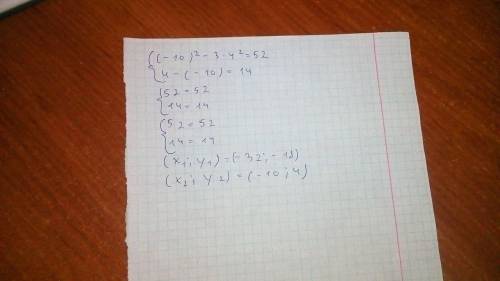 { (-10)² - 3 · 4² = 52
{ 4 - (-10) = 14
{ 52 = 52
{ 14 = 14
{ 52 = 52
{ 14 = 14
(x₁; y₁) = (-32; -18)
(x₂; y₂) = (-10; 4)